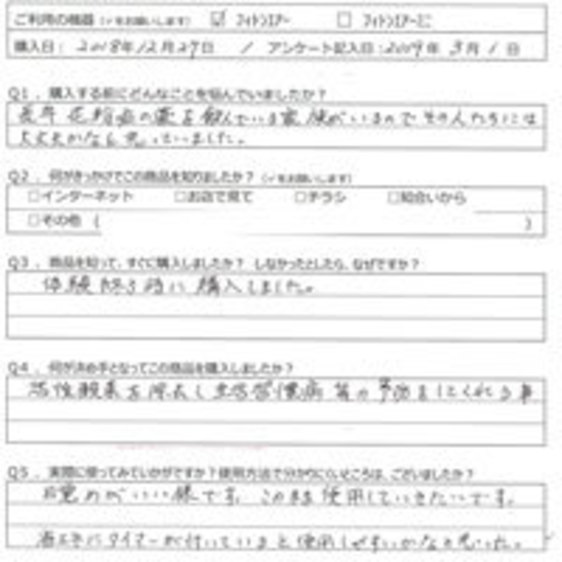 ご利用の機器（✓をお願いします） ☑ フィトンエアー □ フィトンエアーミニ
購入日：2018年12月29日 / アンケート記入日：2019年3月1日
Q1．購入する前にどんなことを悩んでいましたか？
長年花粉症の薬を飲んでいる家族がいるのでその人たちには
大丈夫かなと思っていました。
Q2．何がきっかけでこの商品を知りましたか？（✓をお願いします）
□インターネット □お店で見て □チラシ □知合いから
□その他（ ）
Q3．商品を知って、すぐに購入しましたか？ しなかったとしたら、なぜですか？
体験 時に購入しました。
Q4．何が決め手となってこの商品を購入しましたか？
活性酸素を除去し生活習慣病等の予防をしてくれる事
Q5．実際に使ってみていかがですか？使用方法で分かりにくいところは、ございましたか？
目覚めがいい様です。このまま使用していきたいです。
省エネにタイマーが付いていると使用しやすいかなと思った。